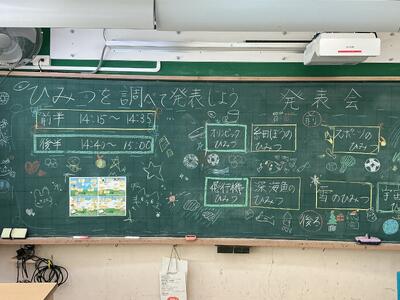 ひみつを調べて発表しよう
発表会
前半 14:15〜14:35
後半 14:40〜15:00
オリンピックのひみつ
細ぼうのひみつ
前
スポーツのひみつ
飛行機ひみつ
深海魚のひみつ
後ろ
雪のひみつ
宇宙